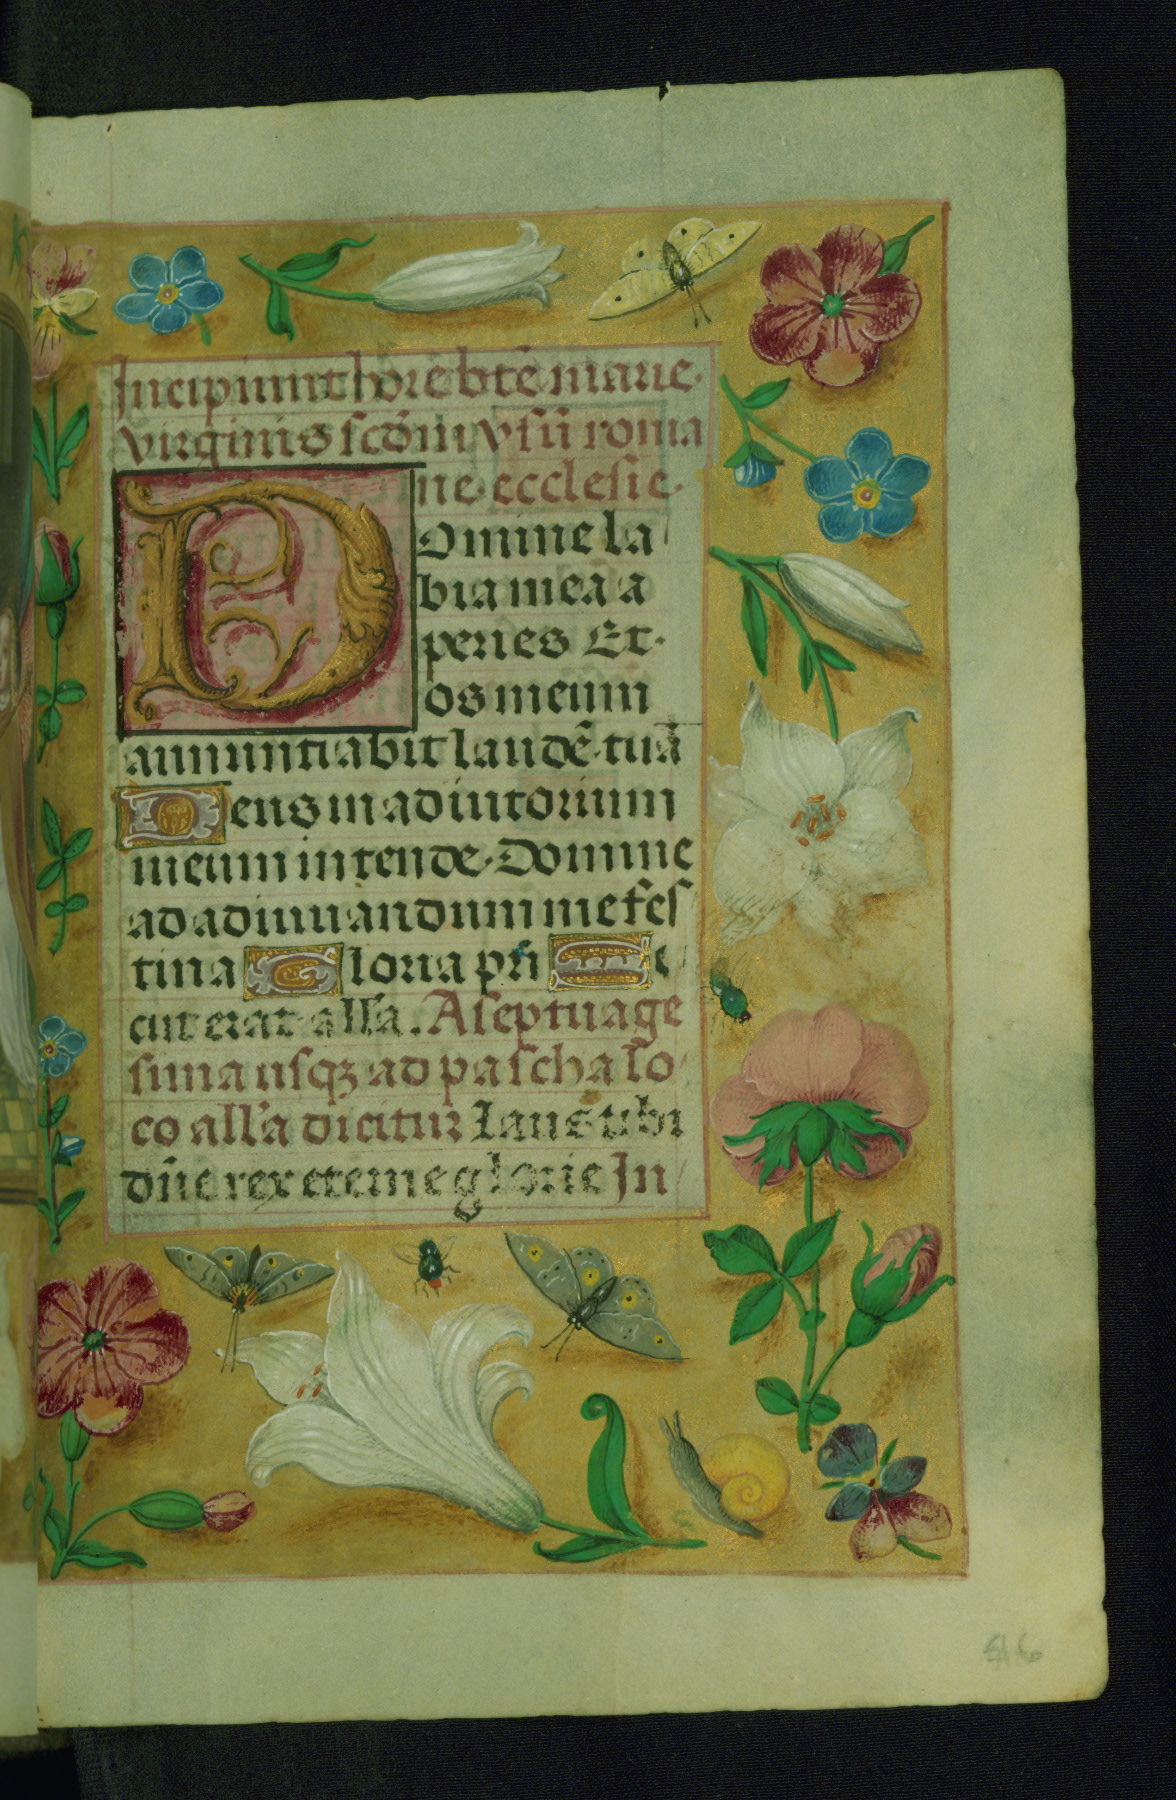 Incipiunt hore bte᷃ marie.
virginis scd᷃m vsu᷃ roma
ne ecclesie.
Domine la
bia mea a
peries Et.
os meum
annuntiabit laude᷃ tua᷃
Deus in adiutorium
meum intende. Domine
ad adiuuandum me fes
tina Gloria pri᷃ S
cut erat all'a. A septuage
sima usqꝫ ad pascha lo
co all'a dicitur Laus tibi
dn᷃e rex eterne glorie In